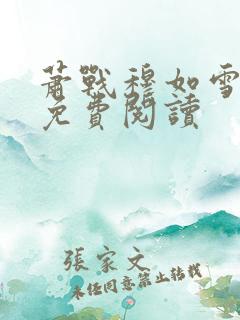 蕭戰穆如雪
免費閱讀
張家文
未經同意禁止轉載